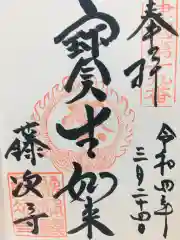 奉拝
令和四年
三月二十四日
寳生如来
藤次寺